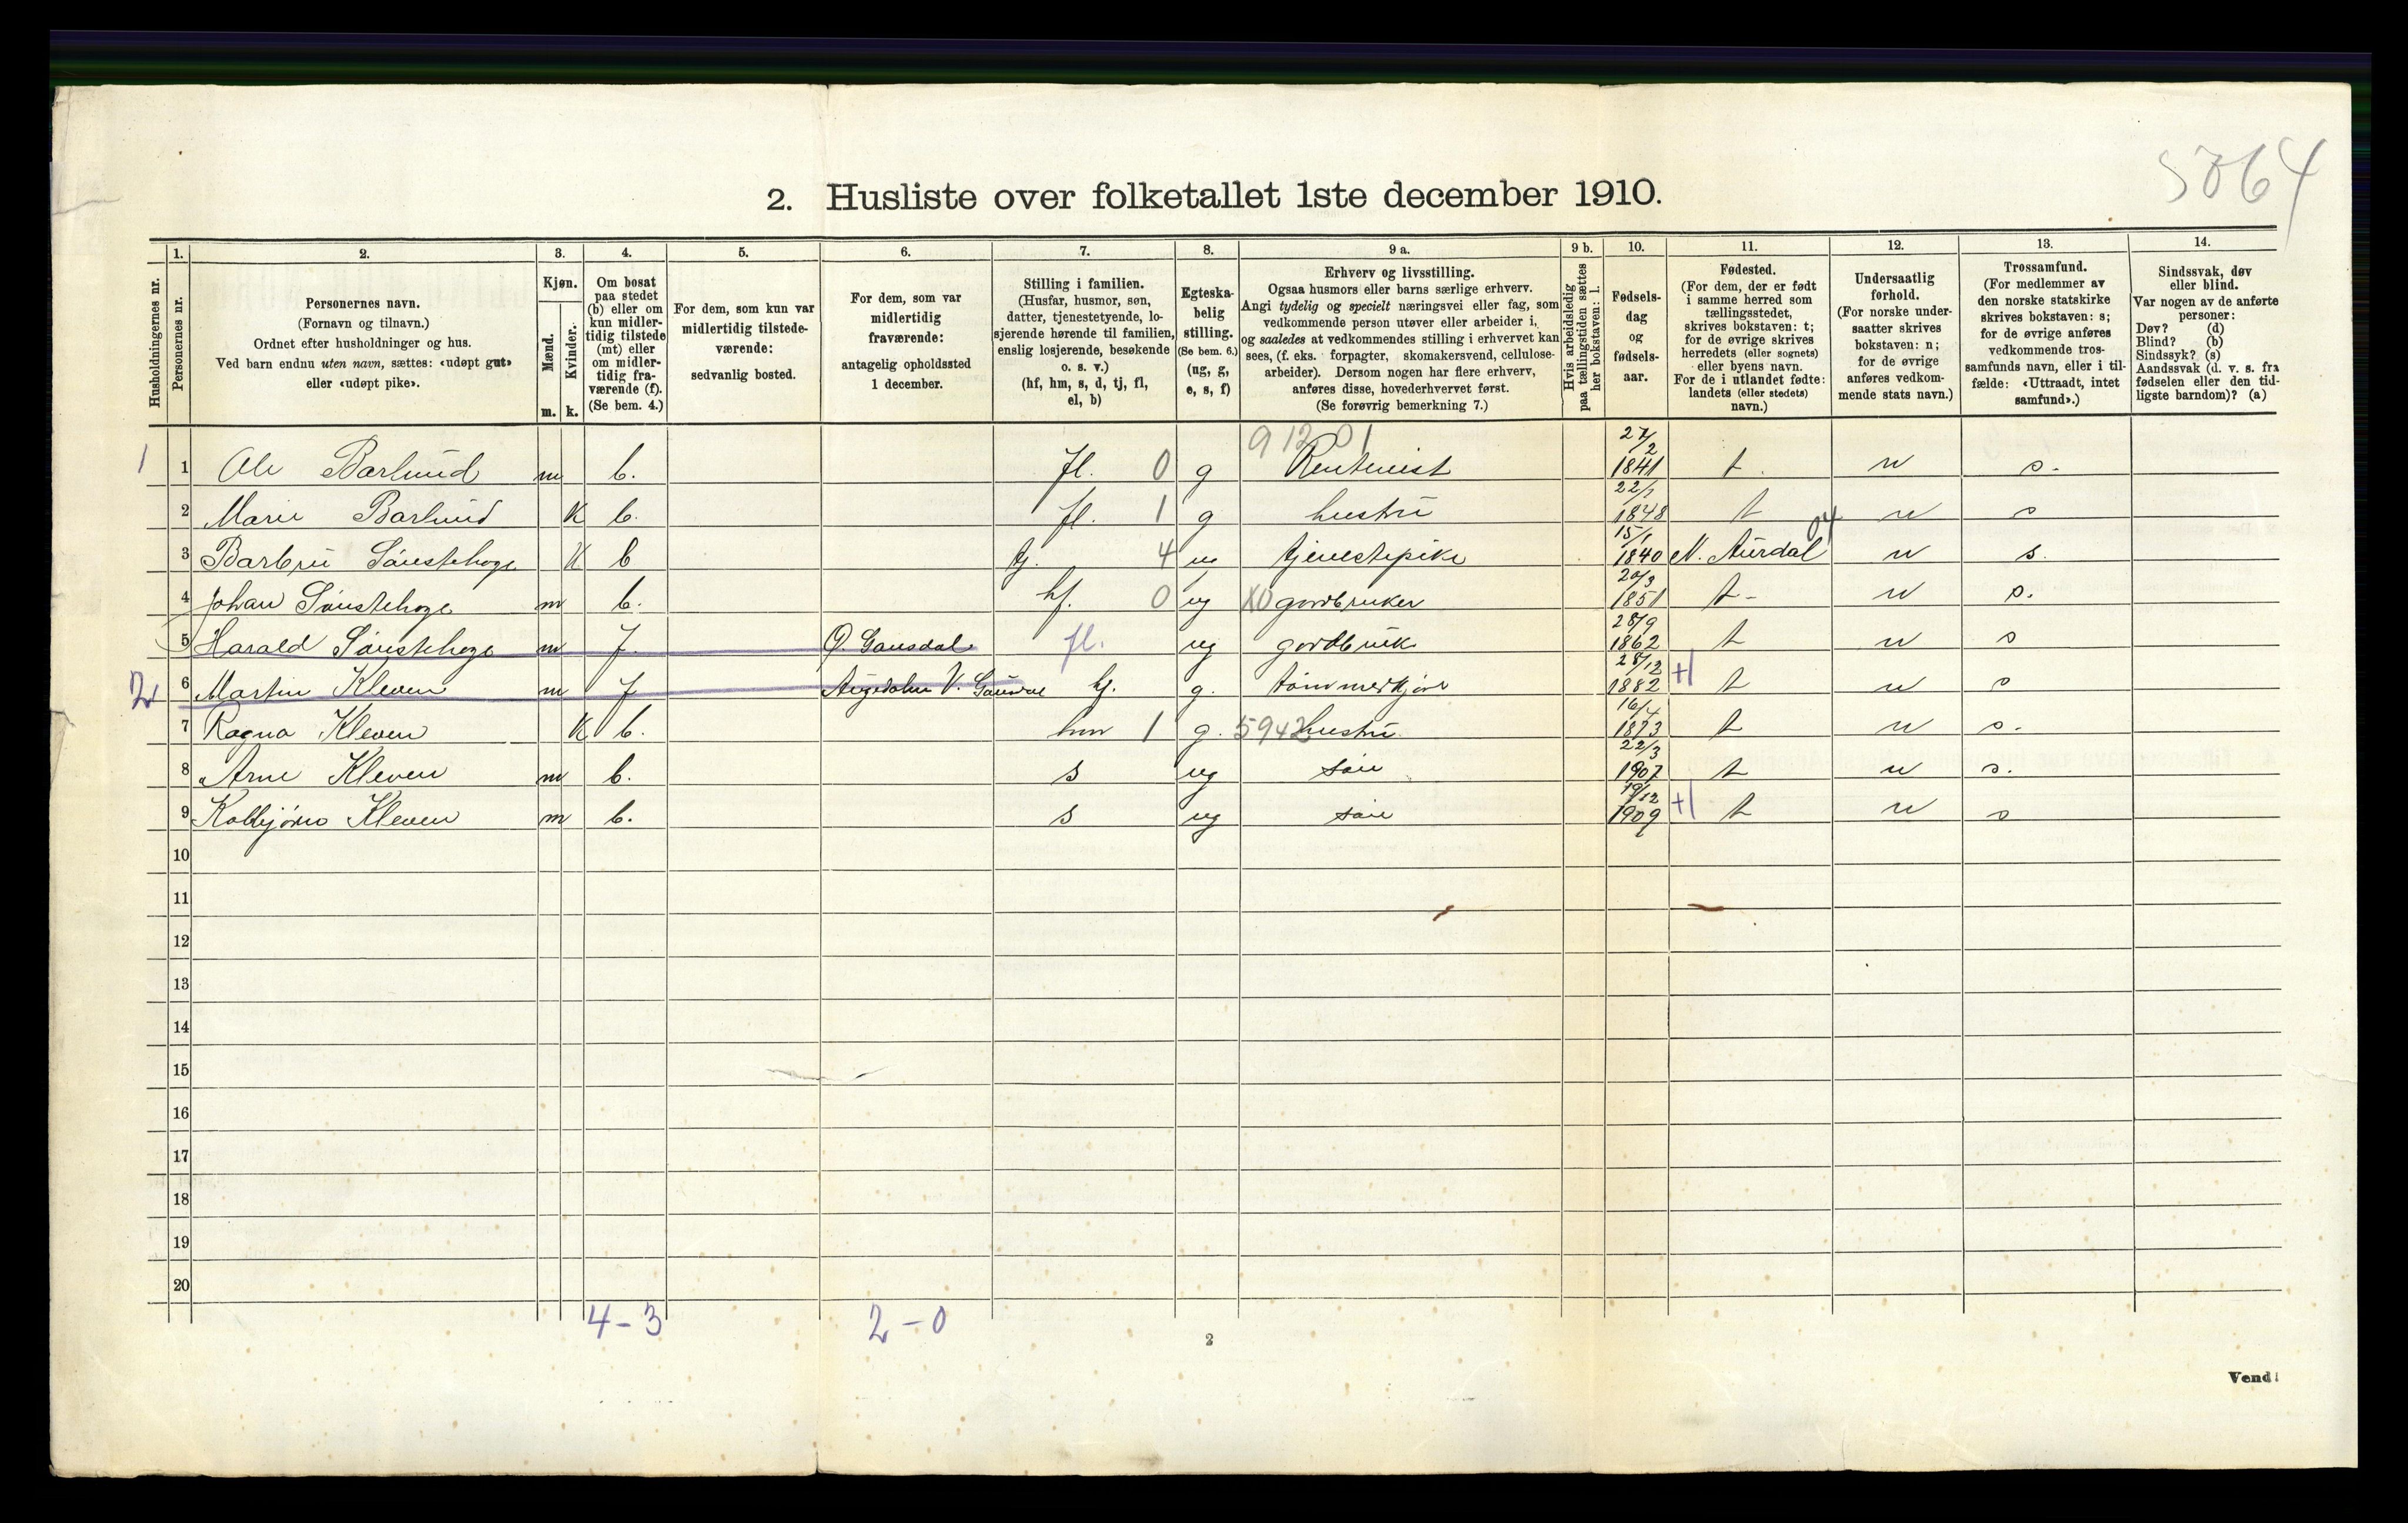 5064
2. Husliste over folketallet 1ste december 1910.
Husholdningernes nr.
1.
Personernes nr.
2.
Personernes navn.
(Fornavn og tilnavn.)
Ordnet efter husholdninger og hus.
Ved barn endnu uten navn, sættes: «udøpt gut»
eller «udøpt pike».
3.
Kjøn.
Mænd.
Kvinder.
m. k.
4.
Om bosat
paa stedet
(b) eller om
kun midler-
tidig tilstede
(mt) eller
om midler-
tidig fra-
værende (f).
(Se bem. 4.)
5.
For dem, som kun var
midlertidig tilstede-
værende:
sedvanlig bosted.
6.
For dem, som var
midlertidig
fraværende:
antagelig opholdssted
1 december.
7.
Stilling i familien.
(Husfar, husmor, søn,
datter, tjenestetyende, lo-
sjerende hørende til familien,
enslig losjerende, besøkende
o. s. v.)
(hf, hm, s, d, tj, fl,
el, b)
8.
Egteska-
belig
stilling.
(Se bem. 6.)
(ug, g,
e, s, f)
9 a.
Erhverv og livsstilling.
Ogsaa husmors eller barns særlige erhverv.
Angi tydelig og specielt næringsvei eller fag, som
vedkommende person utøver eller arbeider i,
og saaledes at vedkommendes stilling i erhvervet kan
sees, (f. eks. forpagter, skomakersvend, cellulose-
arbeider). Dersom nogen har flere erhverv,
anføres disse, hovederhvervet først.
(Se forøvrig bemerkning 7.)
9 b.
Hvis arbeidsledig
paa tællingstiden sættes
her bokstaven: l.
10.
Fødsels-
dag
og
fødsels-
aar.
11.
Fødested.
(For dem, der er født
i samme herred som
tællingsstedet,
skrives bokstaven: t;
for de øvrige skrives
herredets (eller sognets)
eller byens navn.
For de i utlandet fødte:
landets (eller stedets)
navn.)
12.
Undersaatlig
forhold.
(For norske under-
saatter skrives
bokstaven: n;
for de øvrige
anføres vedkom-
mende stats navn.)
13.
Trossamfund.
(For medlemmer av
den norske statskirke
skrives bokstaven: s;
for de øvrige anføres
vedkommende tros-
samfunds navn, eller i til-
fælde: «Uttraadt, intet
samfund».)
14.
Sindssvak, døv
eller blind.
Var nogen av de anførte
personer:
Døv? (d)
Blind? (b)
Sindssyk? (s)
Aandssvak (d. v. s. fra
fødselen eller den tid-
ligste barndom)? (a)
91201
1 1 Ole Barlund m b. fl. 0 g Renteneist 27/2 1841 t. n s.
2 Marie Barlund K b. fl. 1 g hustru 22/7 1848 t n s
3 Barbru Sønstehoge K b tj. 4 ug tjenestepike 15/1 1840 N. Aurdal 04 n s.
4 Johan Sønstehoge m b. hf. 0 ug X0 gordbruker 20/3 1851 t - n s.
5 Harald Sønstehoge m f. Ø. Gausdal fl. ug gordbruk 28/9 1862 t n s
2 6 Martin Kleven m f V. Gausdal hf. g. tømmerkjøre 28/12 1882 +1 t n s
7 Ragna Kleven K b. hm 1 g. 5942 hustru 16/4 1873 t n s.
8 Arne Kleven m b. s ug søn 22/3 1907 t n s.
9 Kolbjørn Kleven m b. s ug søn 19/12 1909 +1 t n s
10
11
12
13
14
15
16
17
18
19
20
4-3 2-0
2
Vend!